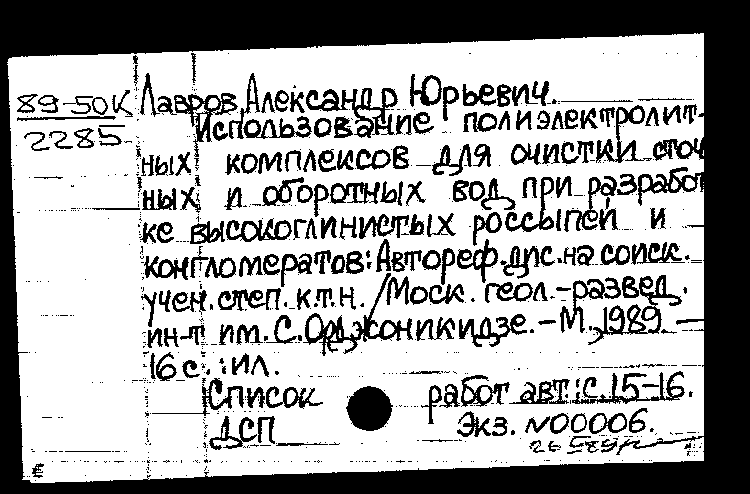 89-50К Лавров, Александр Юрьевич.
2285 Использование полиэлектролит-
ных комплексов для очистки сточ
ных и оборотных вод при разработ
ке высокоглинистых россыпей и
конгломератов: Автореф. дис. на соиск.
учен. степ. к.т.н. / Моск. геол.-развед.
ин-т им. С. Орджоникидзе. - М., 1989. -
16 с. : ил.
Список работ авт.: с. 15-16.
ДСП Экз. N00006.
Е